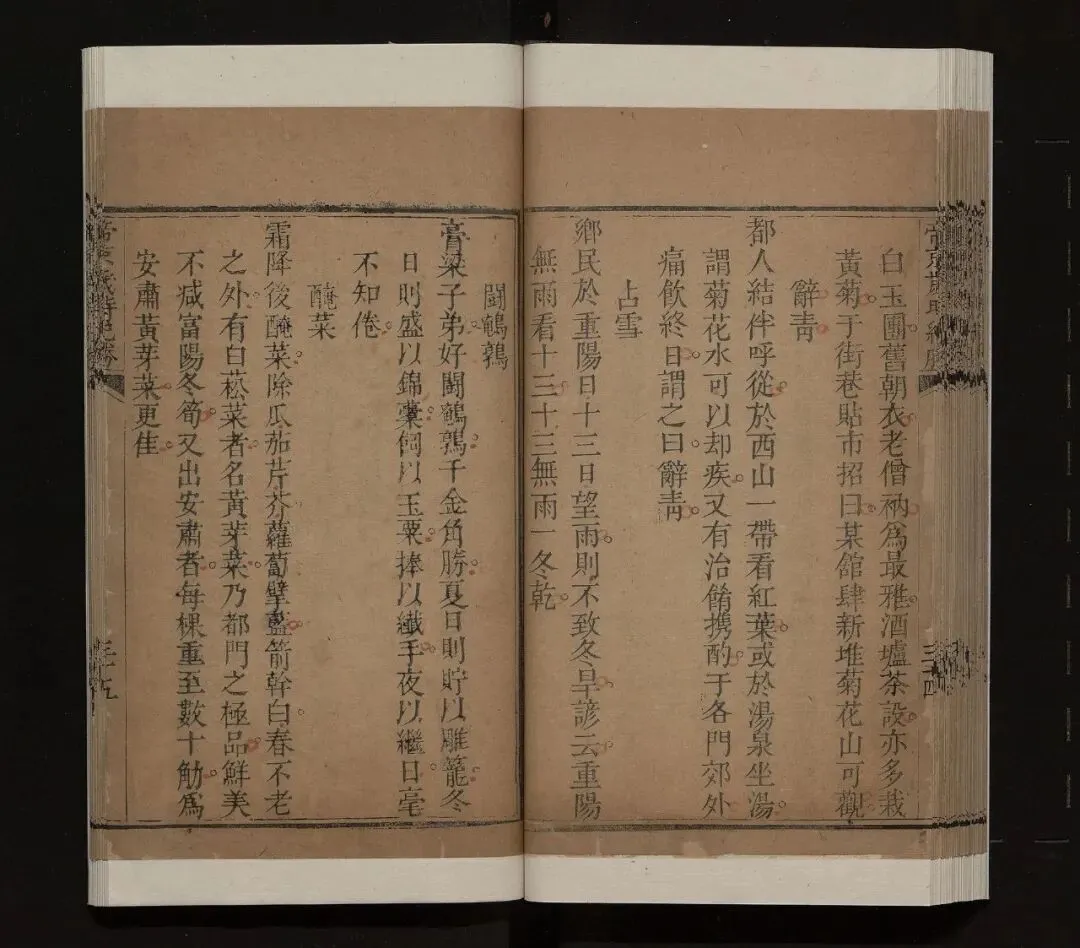 白玉團舊朝衣老僧衲爲最雅酒壚茶設亦多栽
黃菊于街巷貼市招曰某館肆新堆菊花山可觀
辭青
都人結伴呼從於西山一帶看紅葉或於湯泉坐湯
謂菊花水可以却疾又有治餚携酌于各門郊外
痛飲終日謂之曰辭青
占雪
鄉民於重陽日十三日望雨則不致冬旱諺云重陽
無雨看十三十三無雨一冬乾
三十四
鬭鵪鶉
膏粱子弟好鬭鵪鶉千金角勝夏日則貯以雕籠冬
日則盛以錦囊飼以玉粟捧以纖手夜以繼日毫
不知倦
醃菜
霜降後醃菜除瓜茄芹芥蘿蔔擘藍箭幹白春不老
之外有白菘菜者名黃芽菜乃都門之極品鮮美
不减富陽冬筍又出安肅者每棵重至數十觔爲
安肅黃芽菜更佳
三十五